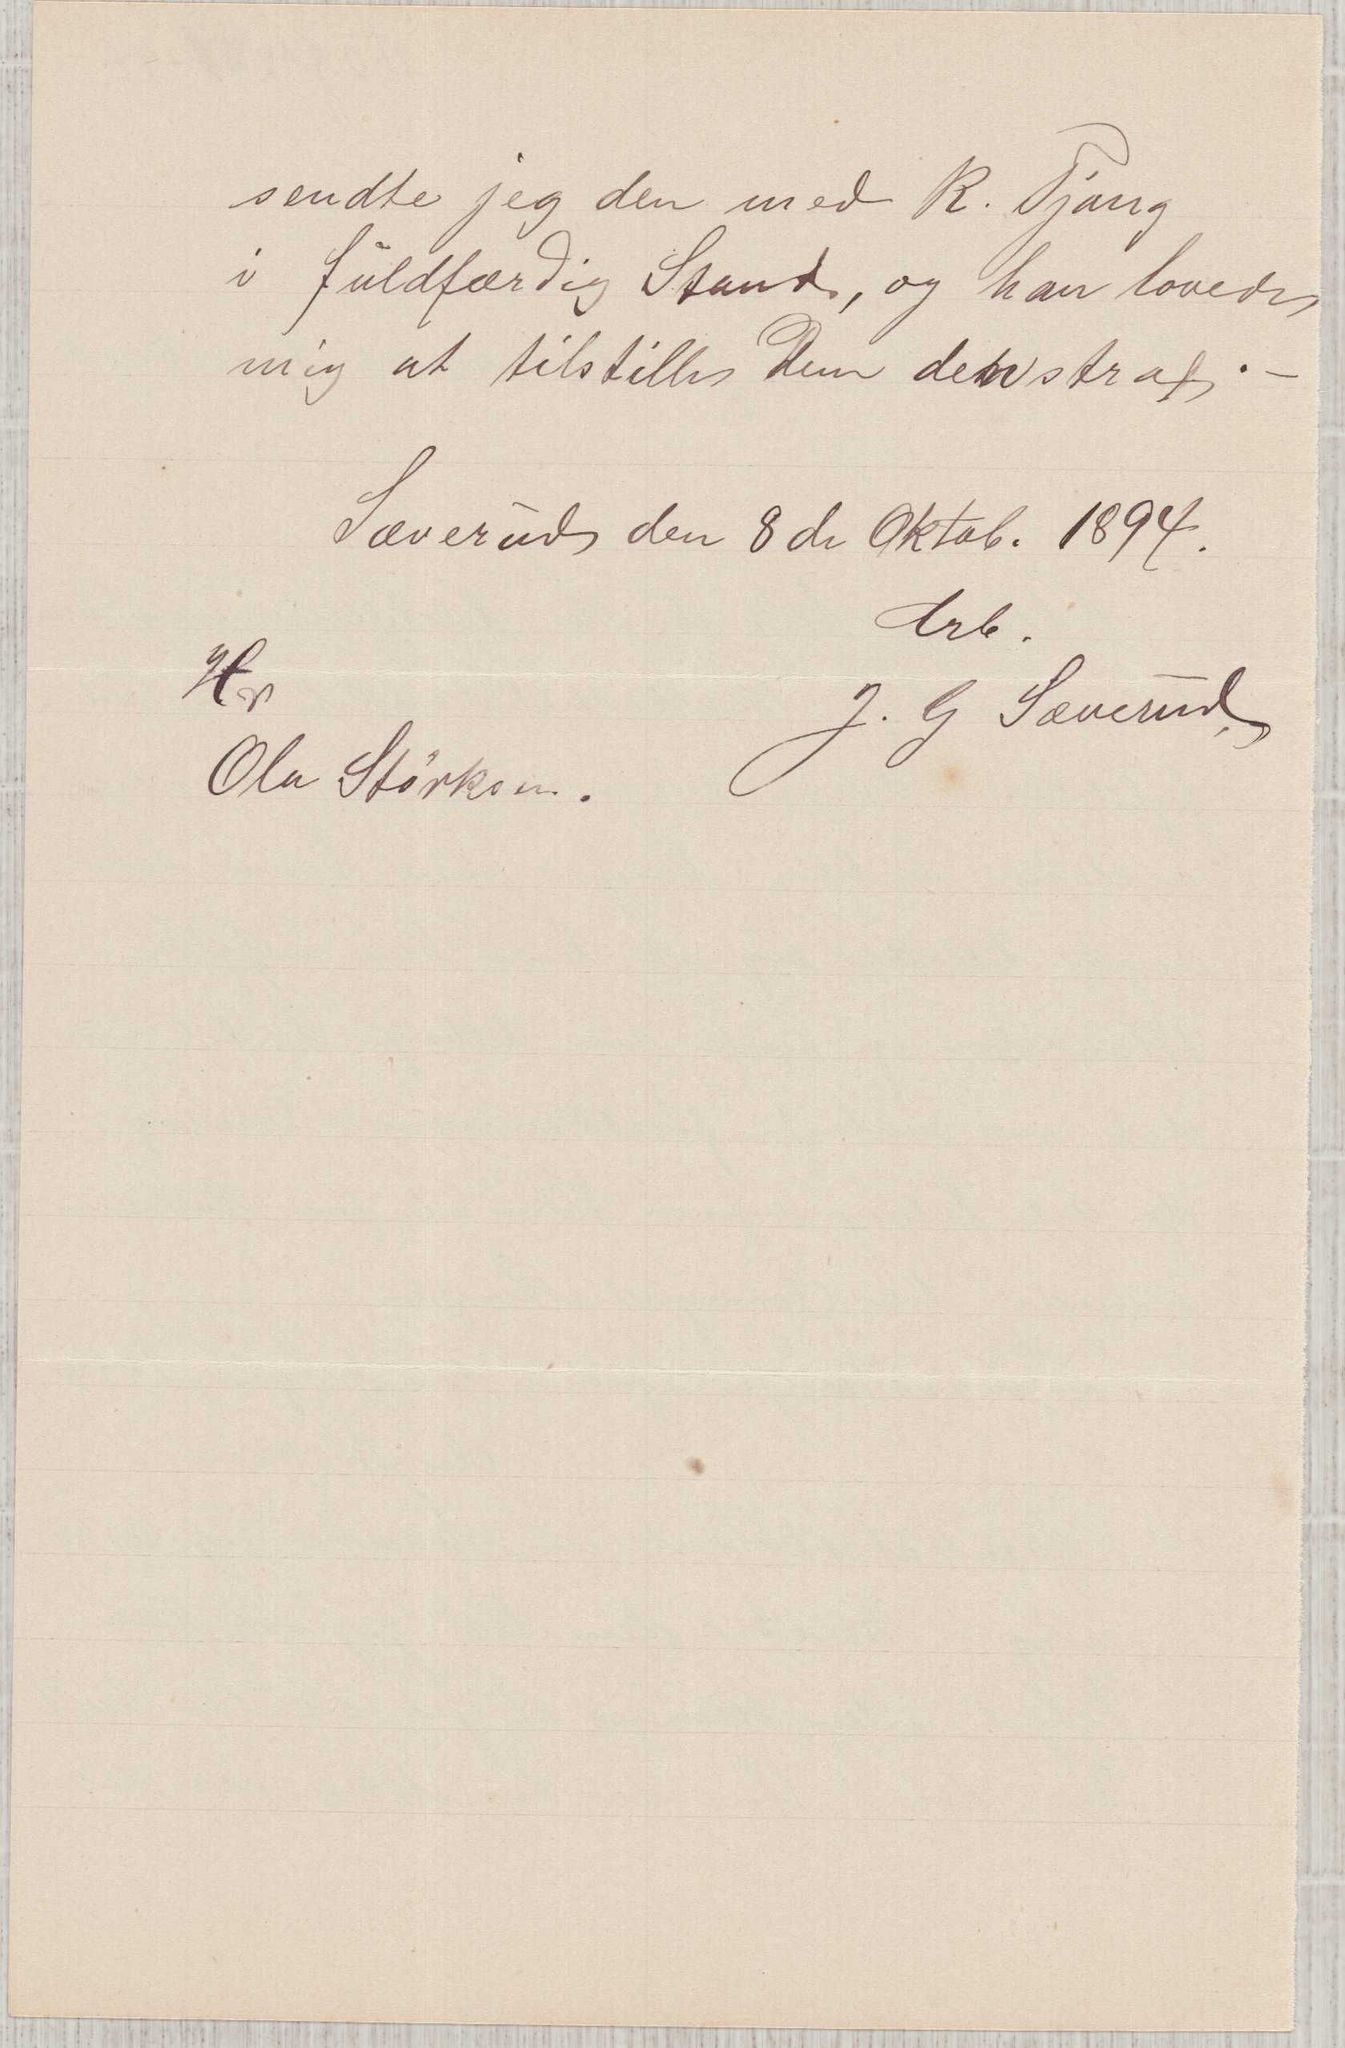 sendte jeg den med R. Tjong
i fuldfærdig Stand, og han lovede
mig at tilstille Dem den strax. —
Sæverud den 8de Oktob. 1894.
Ærb.
Hr
J. G Sæverud,
Ola Störksen.